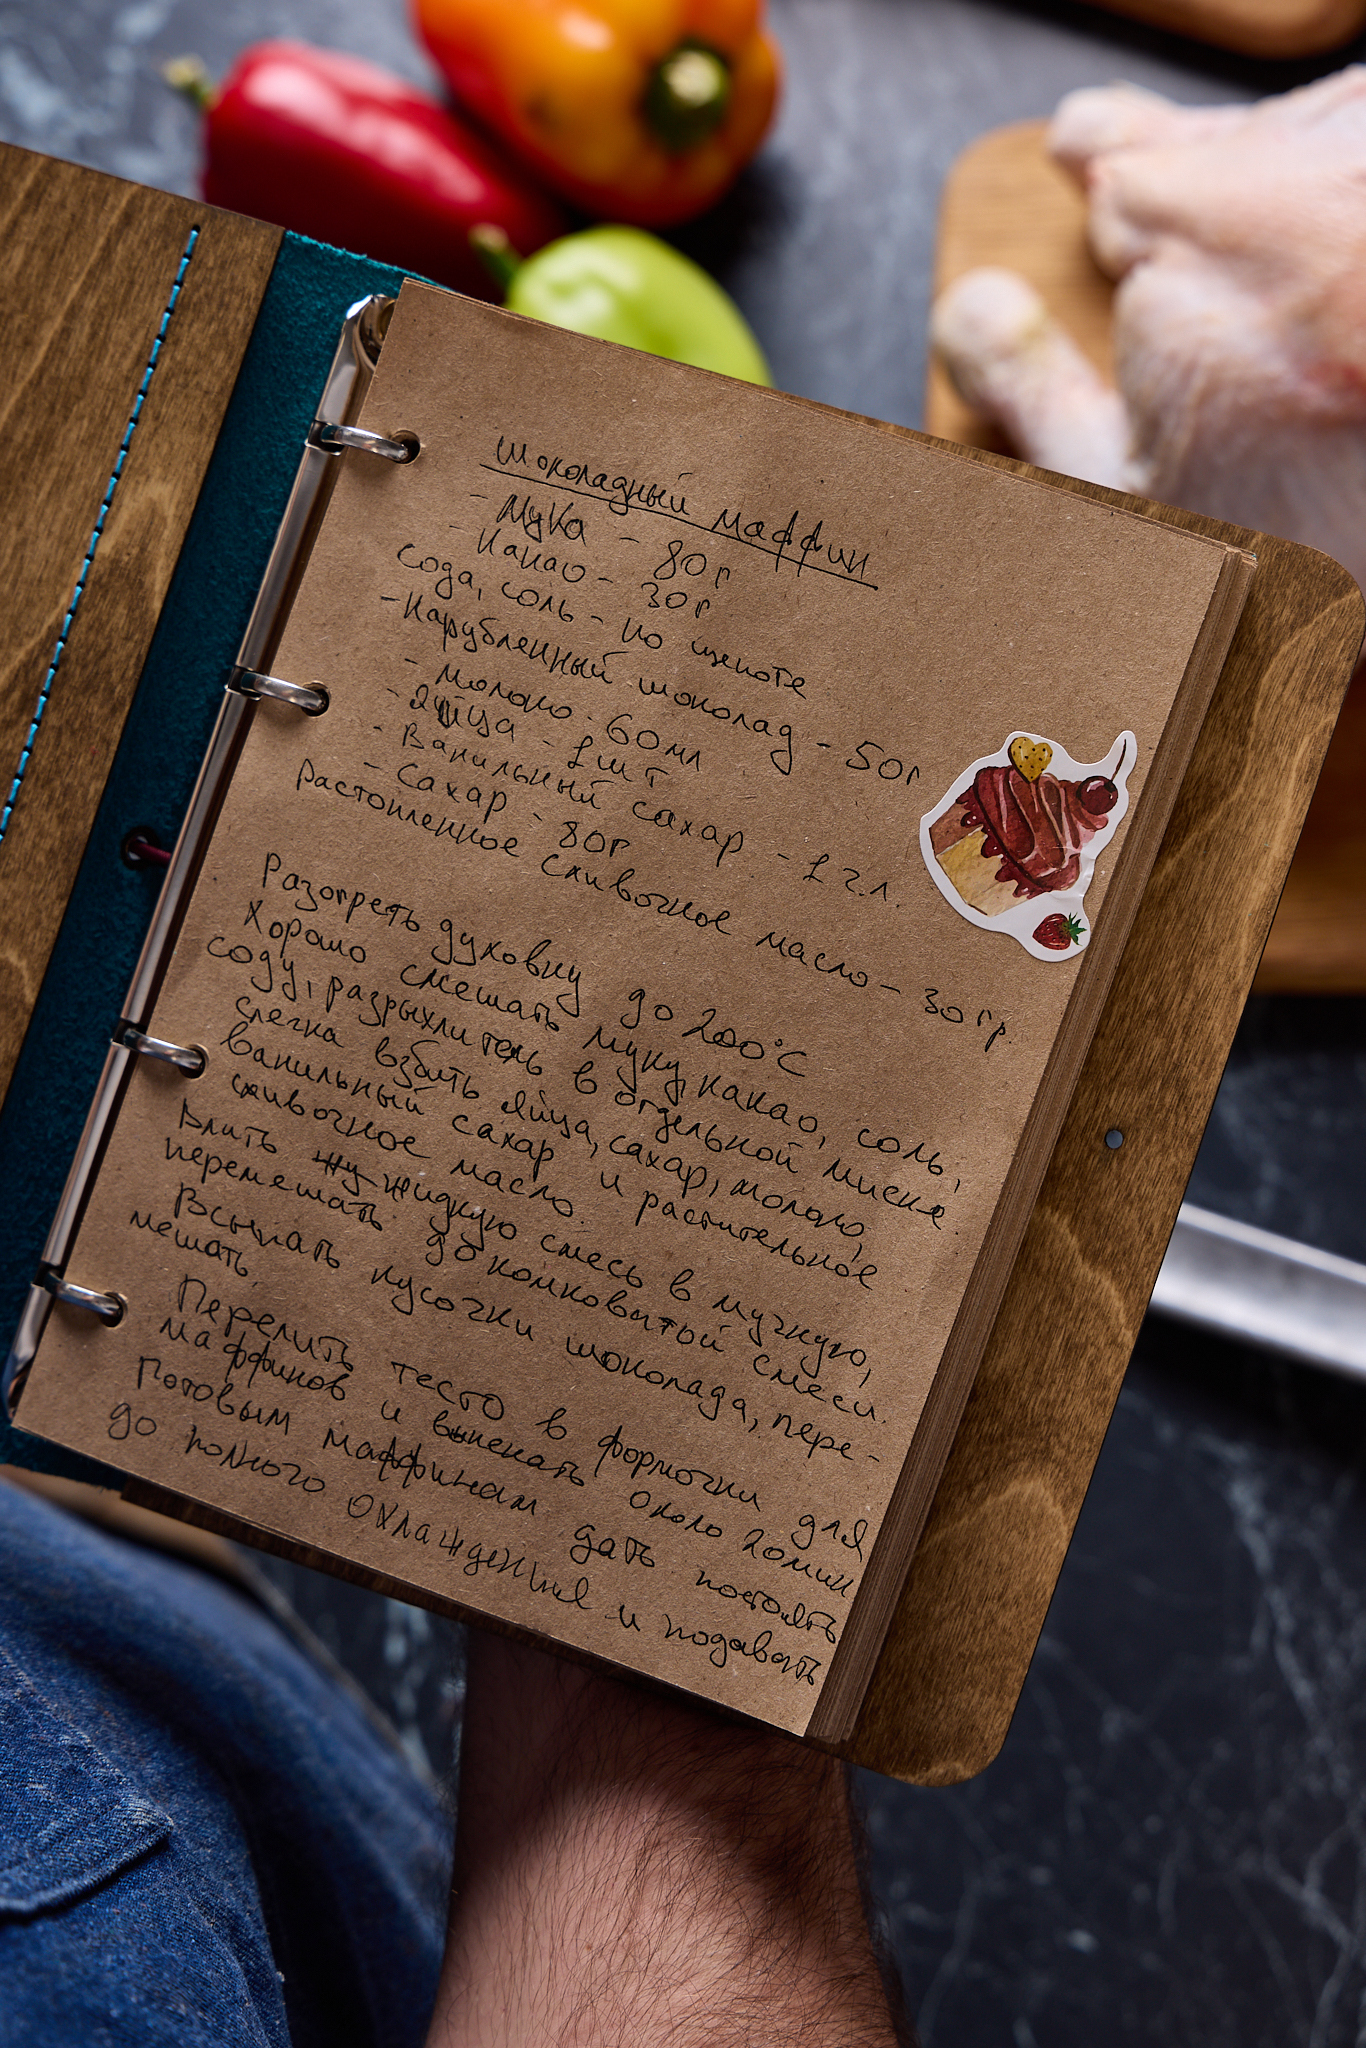 Шоколадный маффин
- Мука - 80 г
- Какао - 30 г
Сода, соль - по щепоте
- Нарубленный шоколад - 50 г
- молоко - 60 мл
- яйца - 1 шт
- Ванильный сахар - 1 ч.л.
- Сахар - 80 г
Растопленное сливочное масло - 30 гр.
Разогреть духовку до 200°С
Хорошо смешать муку, какао, соль,
соду, разрыхлитель в отдельной миске
слегка взбить яйца, сахар, молоко,
ванильный сахар и растительное
сливочное масло.
Влить жидкую смесь в мучную,
перемешать до комковатой смеси.
Всыпать кусочки шоколада, пере-
мешать.
Перелить тесто в формочки для
маффинов и выпекать около 20 мин
Готовым маффинам дать постоять
до полного охлаждения и подавать